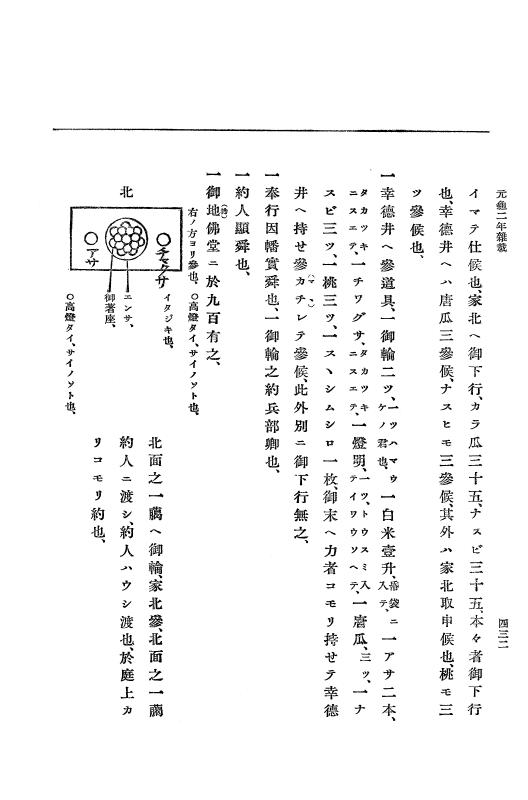 元龜二年雜載
四三二
イマテ仕候也、家北ヘ御下行、カラ瓜三十五、ナスビ三十五、本々者御下行
也、幸德井ヘハ唐瓜三參候、ナスヒモ三參候、其外ハ家北取申候也、桃モ三
ツ參候也、
一幸德井ヘ參道具、一御輪二ツ、一ツハマウケノ君也、一白米壹升、番袋ニ入テ、一アサ二本、
タカツキニスエテ、一チワグサ、タカツキニスエテ、一燈明、一ツ、トウスミ入テイワウソヘテ、一唐瓜、三ツ、一ナ
スビ三ツ、一桃三ツ、一スヽシムシロ一枚、御末ヘ力者コモリ持セテ幸德
井ヘ持セ參カチレテ參候、此外別ニ御下行無之、
一奉行因幡實舜也、一御輪之約兵部卿也、
一約人顯舜也、
一御地佛堂ニ於九百有之、
右ノ方ヨリ參也、
○高燈タイ、サイノソト也、
北
○チマクサ
○アサ
イタジキ也、
エンサ、
御著座、
○高燈タイ、サイノソト也、
北面之一﨟ヘ御輪、家北參、北面之一﨟
約人ニ渡シ、約人ハウシ渡也、於庭上カ
リコモリ約也、